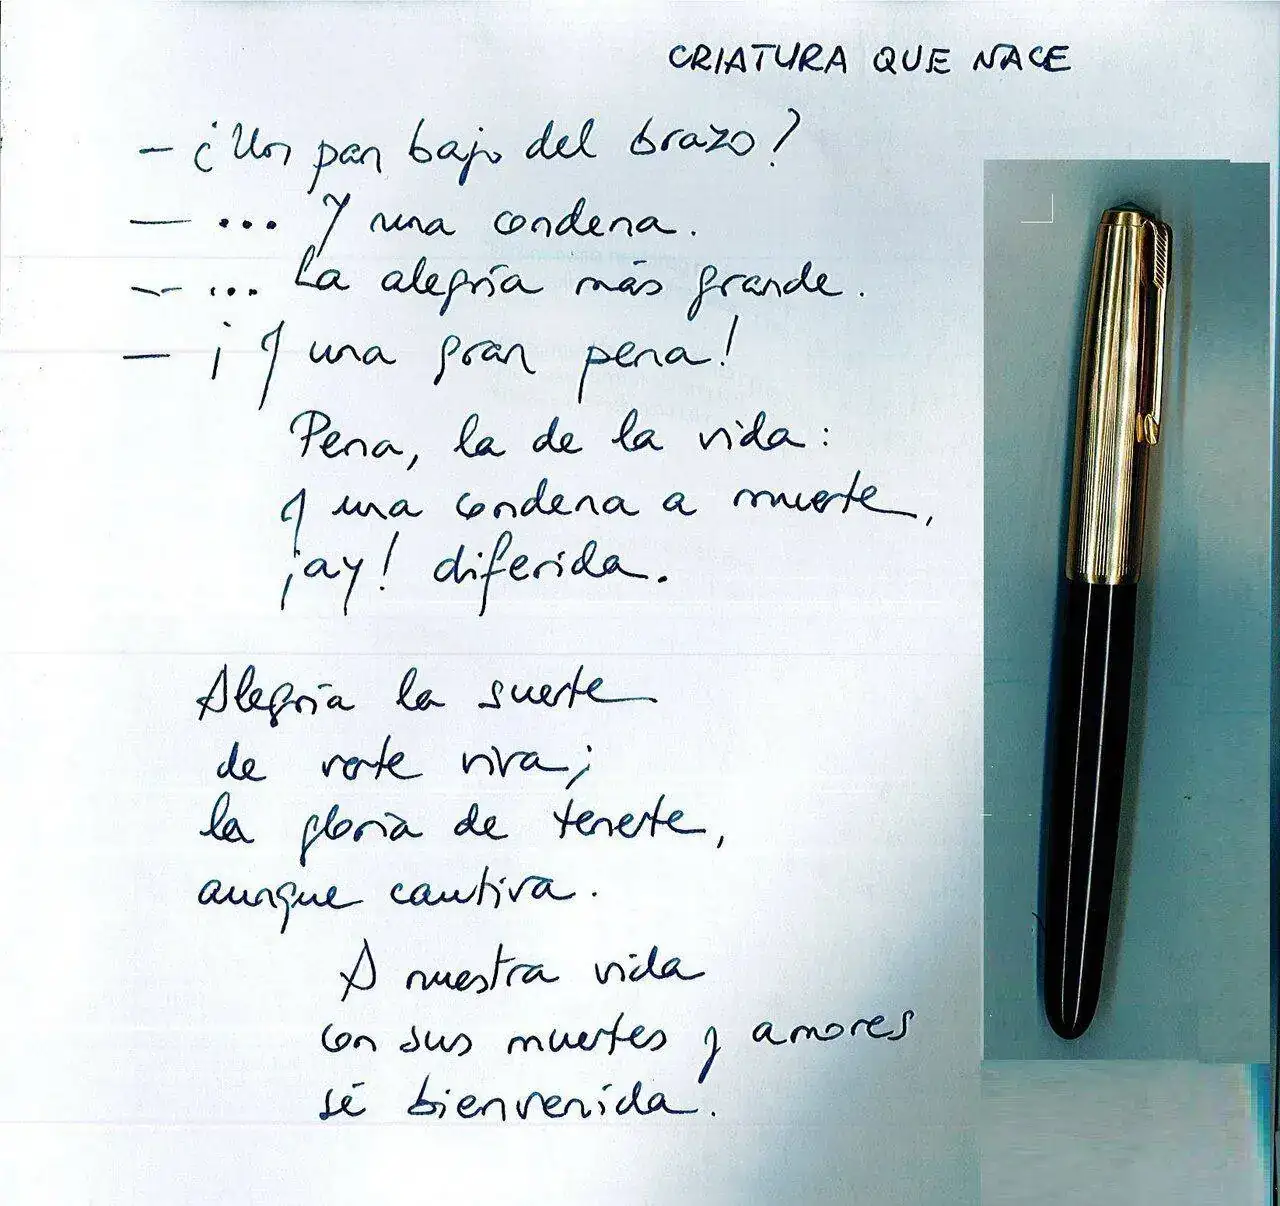 CRIATURA QUE NACE
— ¿Un pan bajo del brazo?
— ... Y una condena.
— ... La alegría más grande.
— ¡Y una gran pena!
Pena, la de la vida:
Y una condena a muerte,
¡ay! diferida.
Alegría la suerte
de verte viva;
la gloria de tenerte,
aunque cautiva.
A nuestra vida
con sus muertes y amores
sé bienvenida.